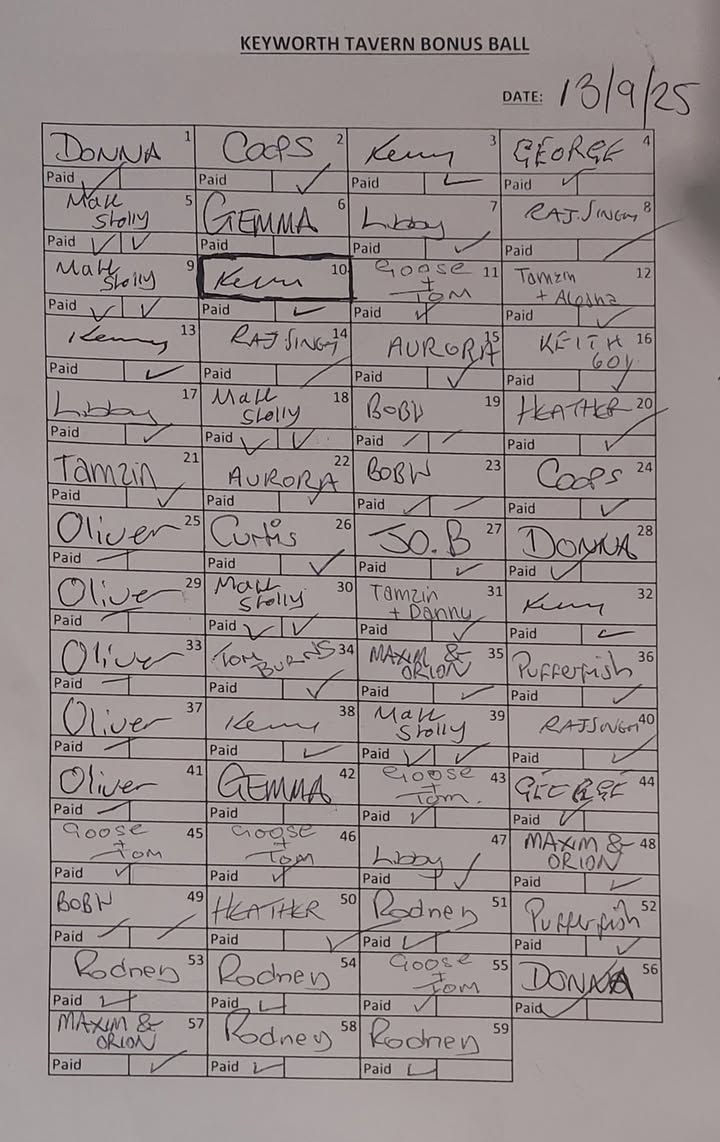 KEYWORTH TAVERN BONUS BALL
DATE: 13/9/25
DONNA 1
Paid
COOPS 2
Paid
Kenny 3
Paid
GEORGE 4
Paid
Matt Stolly 5
Paid
GEMMA 6
Paid
Libby 7
Paid
RAJ.SINGH 8
Paid
Matt Stolly 9
Paid
Kenny 10
Paid
Goose + Tom 11
Paid
Tamzin + Alesha 12
Paid
Kenny 13
Paid
RAJ SINGH 14
Paid
AURORA 15
Paid
KEITH 16
Paid
Libby 17
Paid
Matt Stolly 18
Paid
BOBW 19
Paid
HEATHER 20
Paid
Tamzin 21
Paid
AURORA 22
Paid
BOBW 23
Paid
COOPS 24
Paid
Oliver 25
Paid
Curtis 26
Paid
JO.B 27
Paid
DONNA 28
Paid
Oliver 29
Paid
Matt Stolly 30
Paid
Tamzin + Danny 31
Paid
Kenny 32
Paid
Oliver 33
Paid
TOM BURNS 34
Paid
MAXIM & ORION 35
Paid
Pufferfish 36
Paid
Oliver 37
Paid
Kenny 38
Paid
Matt Stolly 39
Paid
RAJ SINGH 40
Paid
Oliver 41
Paid
GEMMA 42
Paid
Goose + Tom. 43
Paid
GEORGE 44
Paid
Goose + Tom 45
Paid
Goose + Tom 46
Paid
Libby 47
Paid
MAXIM & ORION 48
Paid
BOBW 49
Paid
HEATHER 50
Paid
Rodney 51
Paid
Pufferfish 52
Paid
Rodney 53
Paid
Rodney 54
Paid
Goose + Tom 55
Paid
DONNA 56
Paid
MAXIM & ORION 57
Paid
Rodney 58
Paid
Rodney 59
Paid